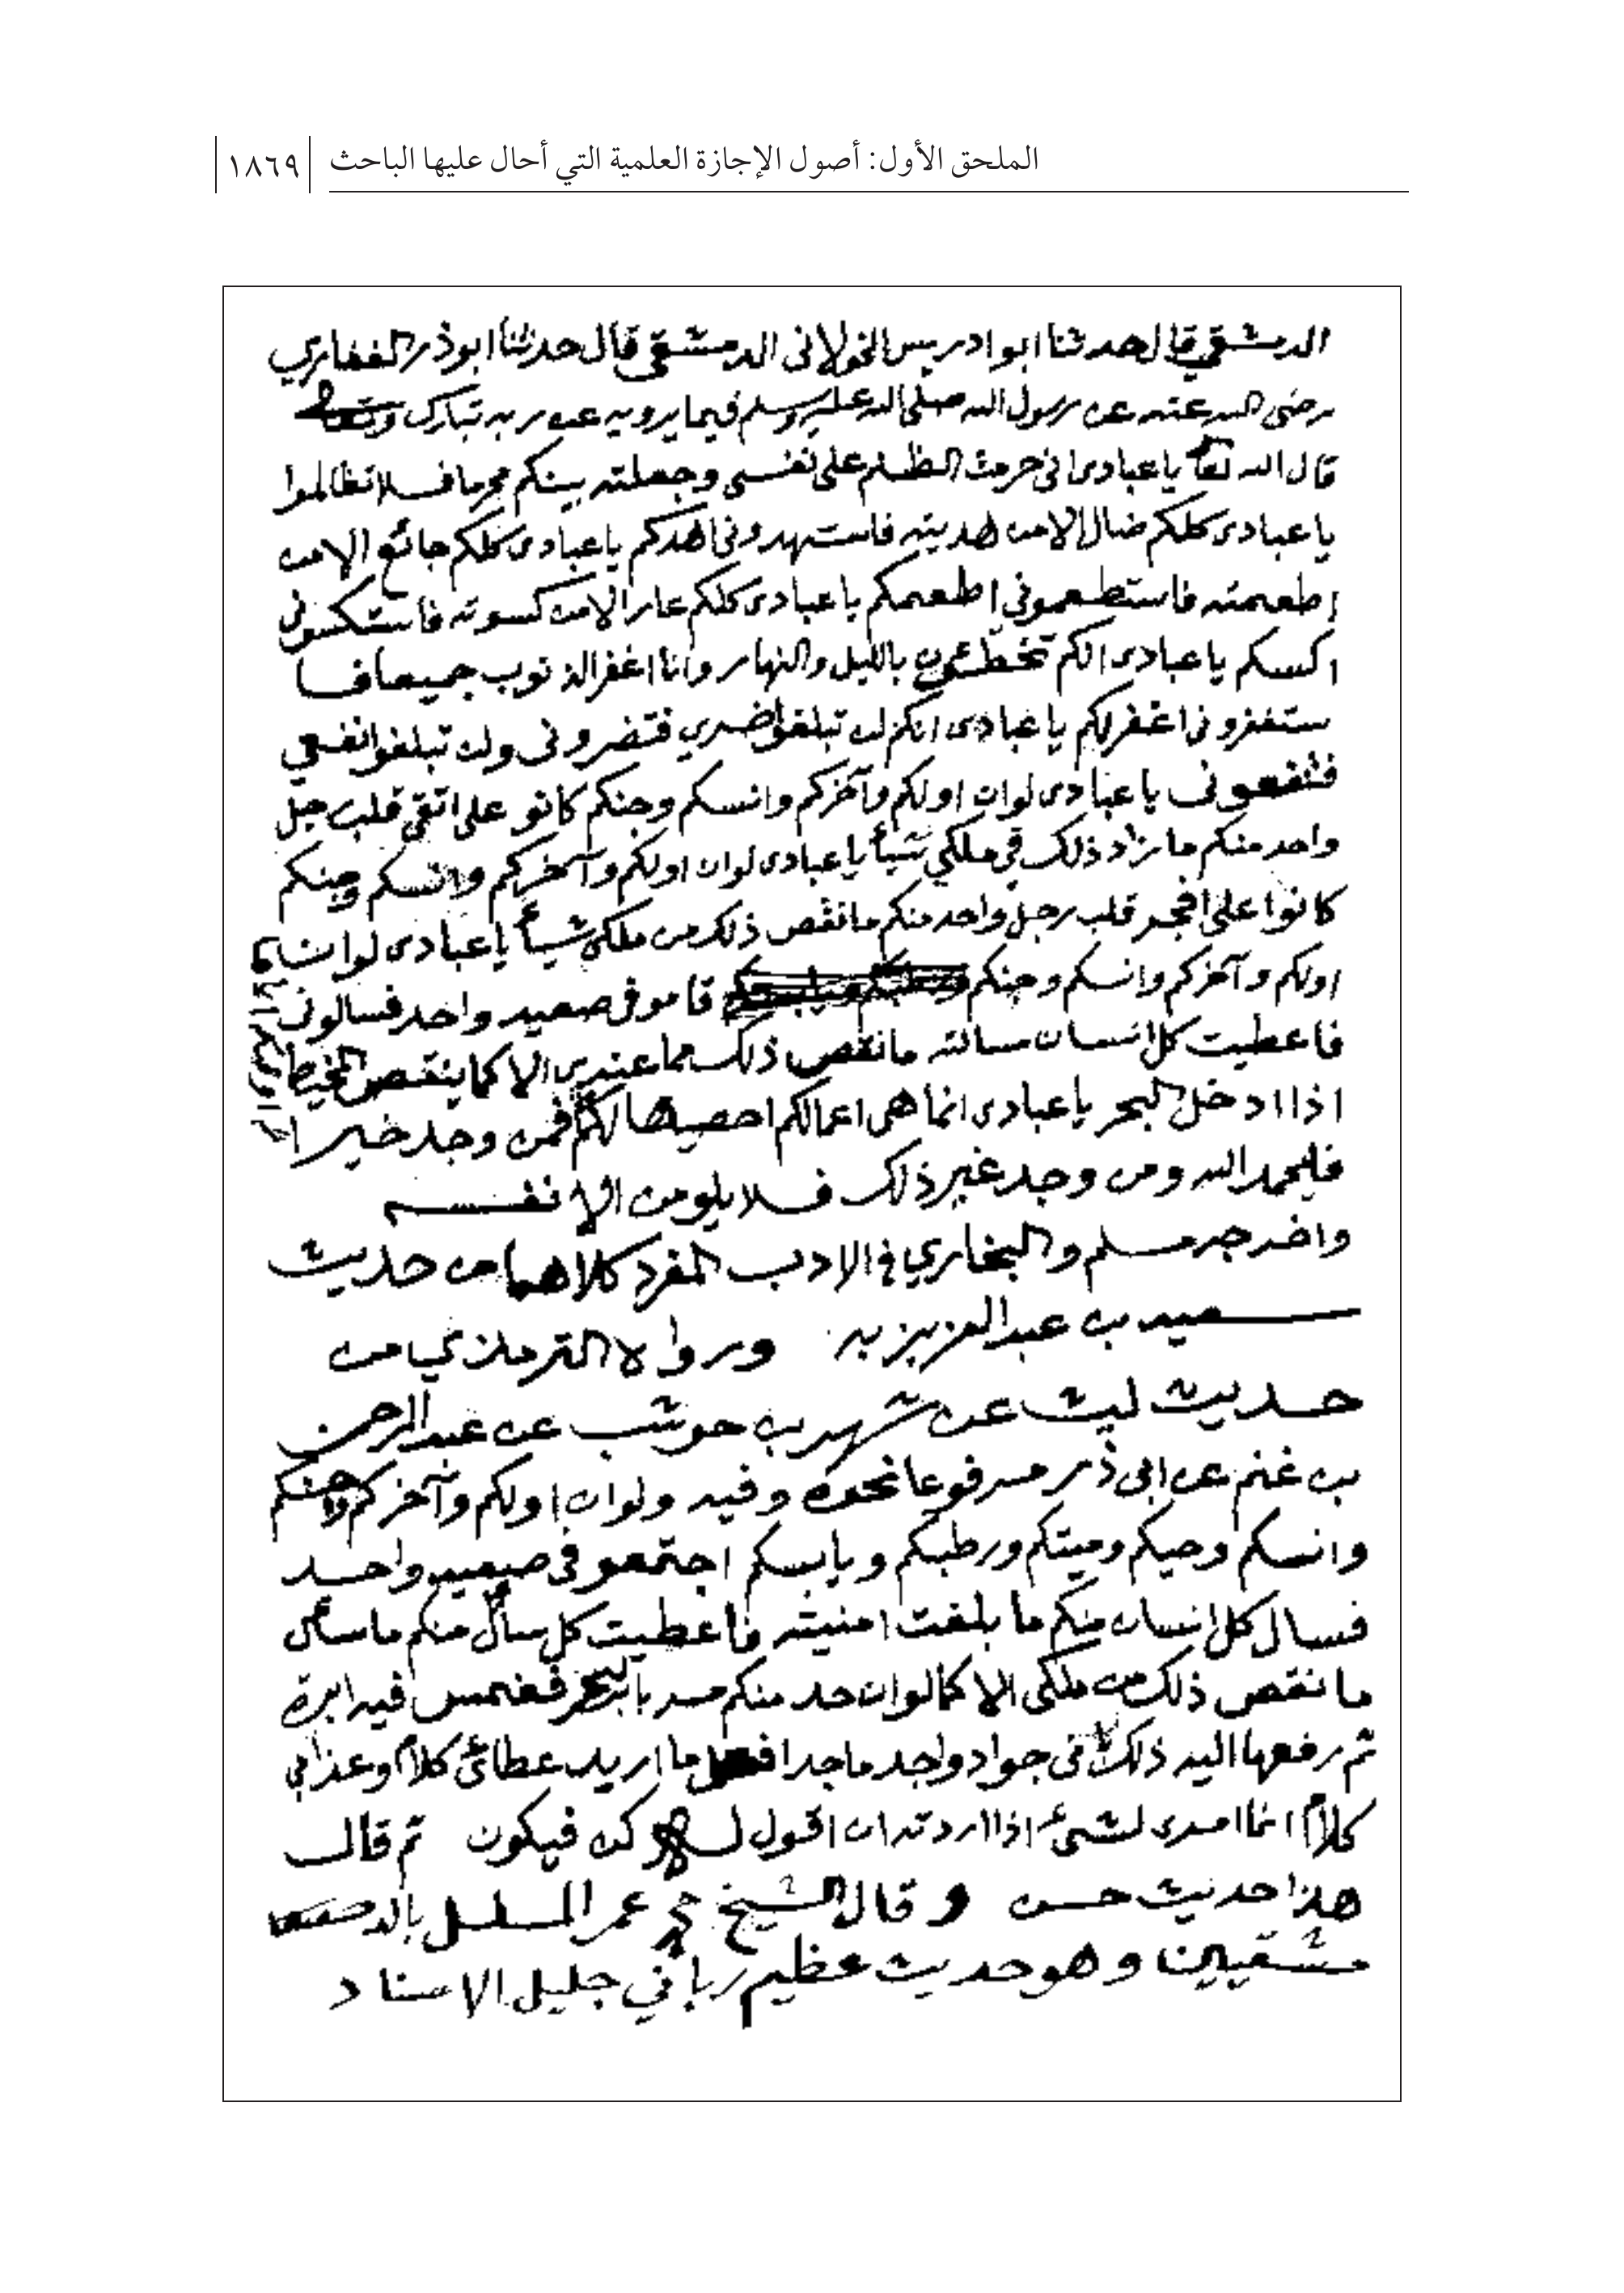 الملحق الأول: أصول الإجازة العلمية التي أحال عليها الباحث ١٨٦٩
الدمشقي قال حدثنا ابوادريس الخولانى الدمشقى قال حدثنا ابوذر الغفاري
رضى الله عنه عن رسول الله صلى الله عليه وسلم فيما يرويه عن ربه تبارك
قال الله تعا يا عبادى انى حرمت الظلم على نفسى وجعلته بينكم محرما فلا تظالموا
يا عبادى كلكم ضال الا من هديته فاستهدونى اهدكم يا عبادى كلكم جائع الا من
اطعمته فاستطعمونى اطعمكم يا عبادى كلكم عار الا من كسوته فاستكسونى
اكسكم يا عبادى انكم تخطئون بالليل والنهار وانا اغفر الذنوب جميعا فا
ستغفرونى اغفرلكم يا عبادى انكم لن تبلغوا ضري فتضرونى ولن تبلغوا نفعي
فتنفعونى يا عبادى لوان اولكم وآخركم وانسكم وجنكم كانو على اتقى قلب رجل
واحد منكم ما زاد ذلك في ملكي شيأ يا عبادى لوان اولكم وآخركم وانسكم وجنكم
كانوا على افجر قلب رجل واحد منكم ما نقص ذلك من ملكى شيأ يا عبادى لوان
اولكم وآخركم وانسكم وجنكم قامو فى صعيد واحد فسالونى
فاعطيت كل انسان مسالته ما نقص ذلك مما عندى الا كما ينقص المخيط
اذا ادخل البحر يا عبادى انما هى اعمالكم احصيها لكم فمن وجد خيرا
فليحمد الله ومن وجد غير ذلك فلا يلومن الا نفسه
واخرجه مسلم والبخاري في الادب المفرد كلاهما من حديث
سعيد بن عبد العزيز به ورواه الترمذي من
حديث ليث عن شهر بن حوشب عن عبد الرحمن
بن غنم عن ابى ذر مرفوعا نحوه وفيه ولوان اولكم وآخركم وجنكم
وانسكم وحيكم وميتكم ورطبكم ويابسكم اجتمعو فى صعيد واحد
فسال كل انسان منكم ما بلغت امنيته فاعطيت كل سائل منكم ما سأل
ما نقص ذلك من ملكى الا كما لوان احد منكم مر بالبحر فغمس فيه ابرة
ثم رفعها اليه ذلك جواد واجد ماجد افعل ما اريد عطائى كلام وعذابي
كلام انما امرى لشىء اذا اردته ان اقول له كن فيكون ثم قال
هذا حديث حسن و قال الشيخ محمد عمر المسلسل بالد
مشقيين وهو حديث عظيم رباني جليل الاسناد